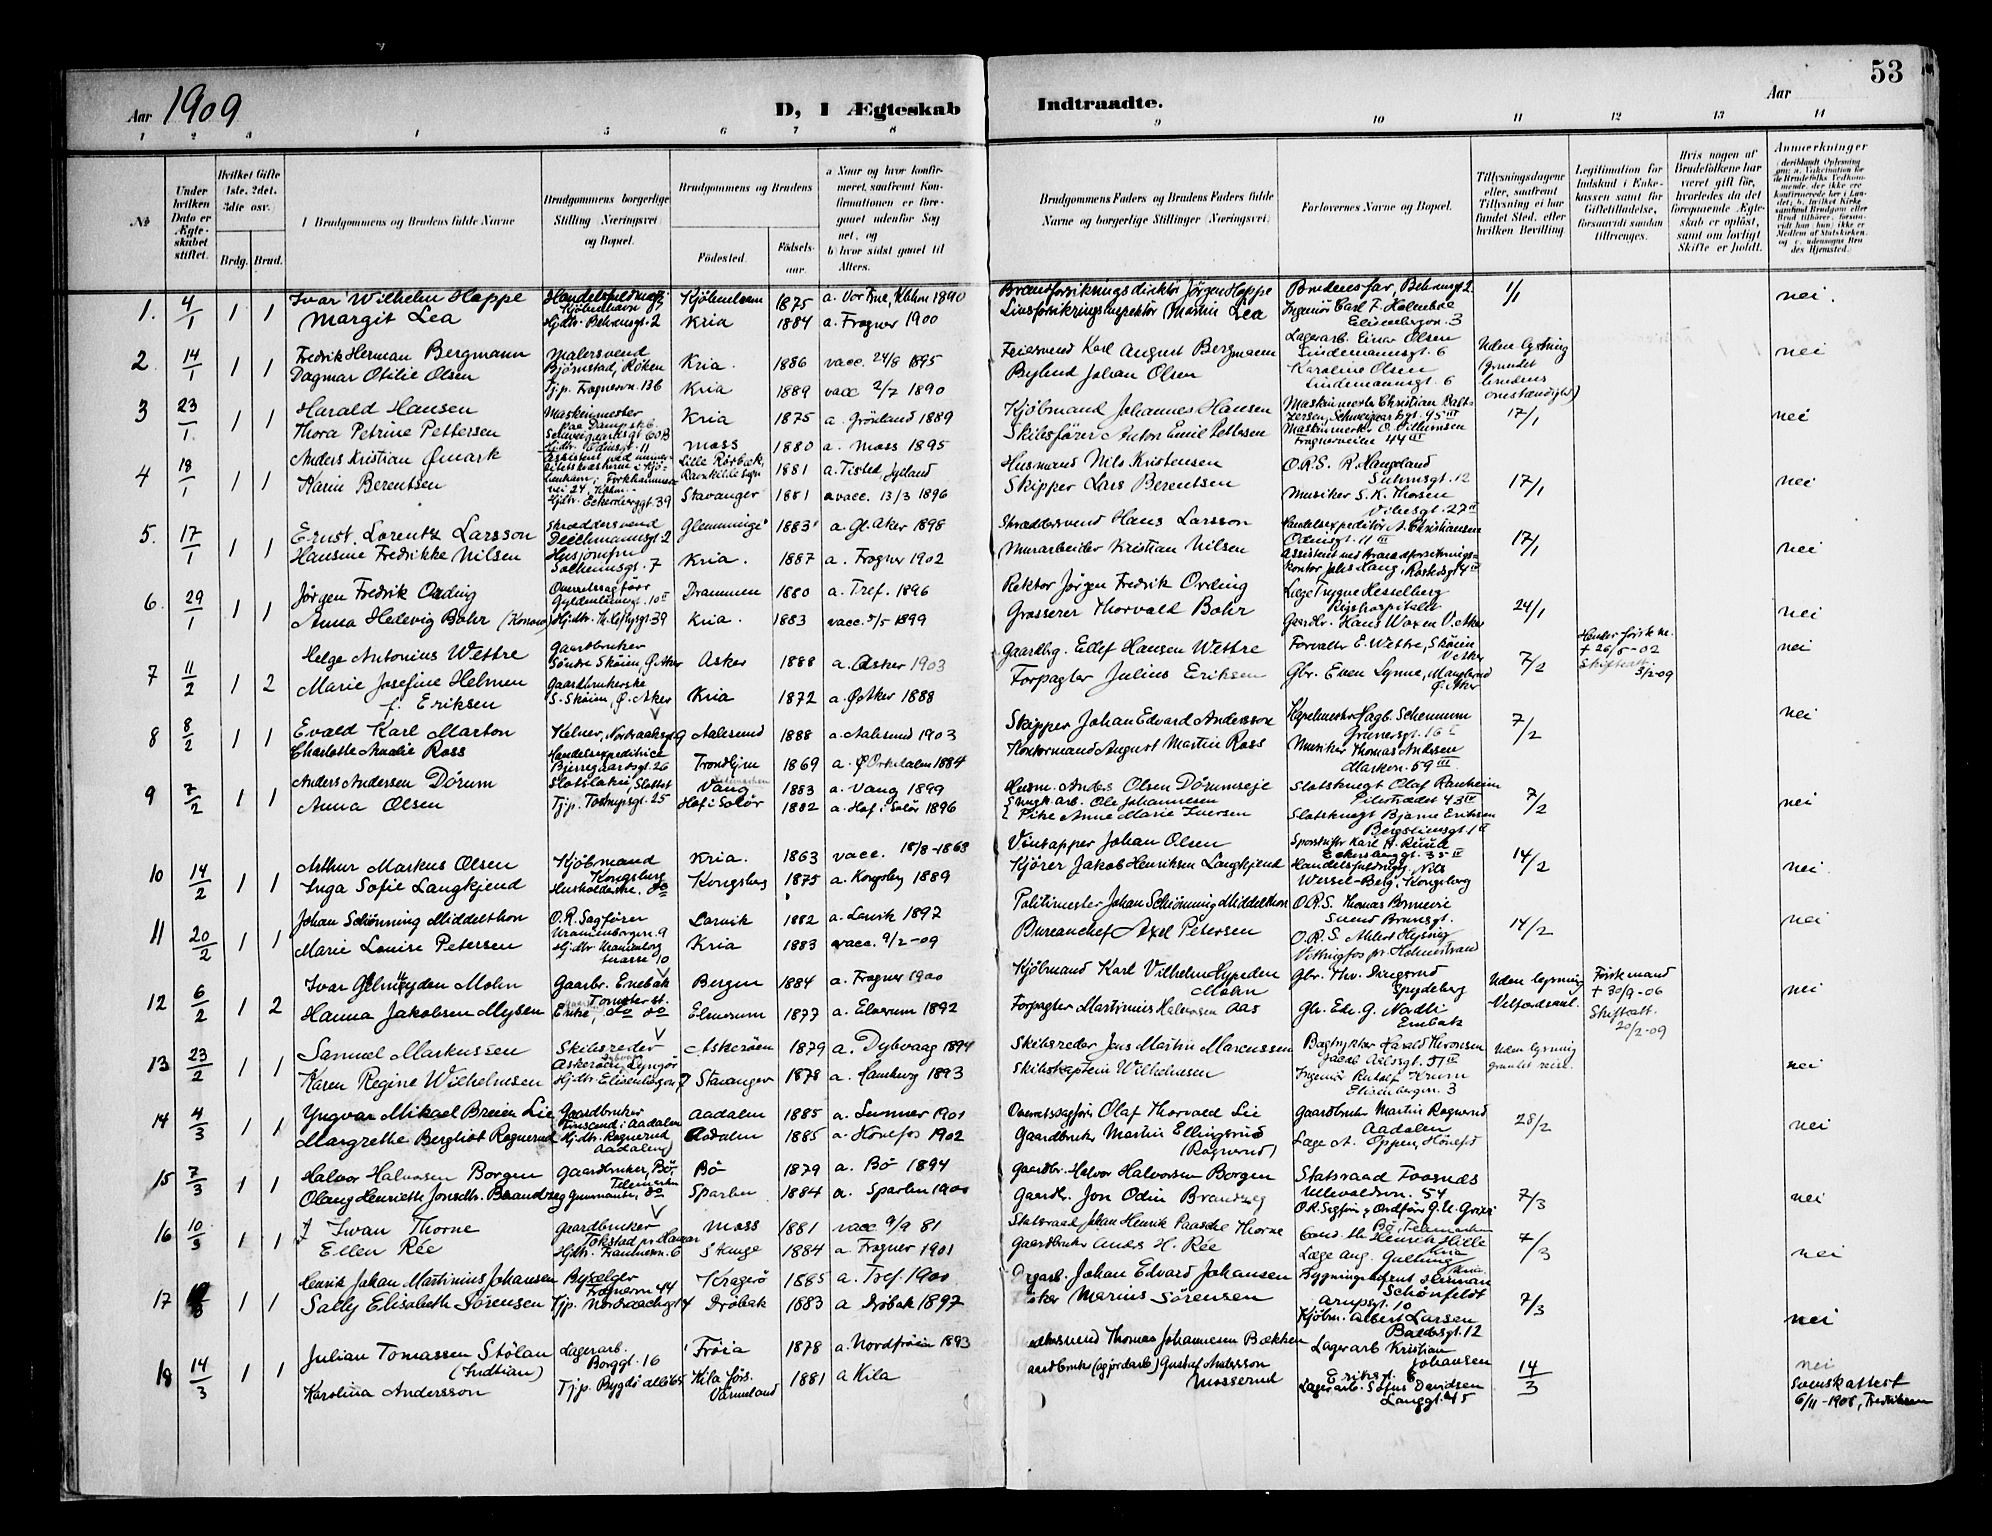 53
Aar 1909
D, I Ægteskab Indtraadte.
Aar
1 2 3 4 5 6 7 8 9 10 11 12 13 14
No
Under hvilken Dato er Ægteskabet stiftet.
Hvilket Gifte 1ste, 2det, 3die osv.
Brdg. Brud.
Brudgommens og Brudens fulde Navne
Brudgommens borgerlige Stilling (Næringsvei) og Bopæl.
Brudgommens og Brudens
Fødested. Fødselsaar.
a. Naar og hvor konfirmeret, saafremt Konfirmationen er foregaaet udenfor Sognet, og
b) hvor sidst gaaet til Alters.
Brudgommens Faders og Brudens Faders fulde Navne og borgerlige Stillinger (Næringsvei).
Forlovernes Navne og Bopæl.
Tillysningsdagene eller, saafremt Tillysning ei har fundet Sted, efter hvilken Bevilling.
Legitimation for Indskud i Enkekassen samt for Giftetilladelse, forsaavidt saadan tiltrænges.
Hvis nogen af Brudefolkene har været gift før, hvorledes da det foregaaende Ægteskab er opløst, samt om lovligt Skifte er holdt.
Anmerkninger
1. 4/1 1 1 Ivar Wilhelm Hoppe Kjöbenhavn 1875 a. Vor Frue, Kbhvn 1890 Brandforsikringsdirektör Jörgen Hoppe Brudens far, Behrensgt 2 1/1 nei.
Margit Lea Hjdtr. Behrensgt. 2 Kria 1884 a. Frogner 1900 Livsforsikringsinspektör Martin Lea Ingeniör Carl F. Holmboe Elisenbergvn. 3
2. 14/1 1 1 Fredrik Herman Bergmann Malersvend Björnstad, Röken Kria. 1886 vacc. 24/8 1895 Feiersvend Karl August Bergmann Lagerarb. Einar Olsen Lindemannsgt. 6 Uden lysning (Grundet brudens omstændigh) nei
Dagmar Otilie Olsen Tjp. Frognervn. 136 Kria 1889 vacc 2/7 1890 Bybud Johan Olsen Karoline Olsen Lindemannsgt. 6
3 23/1. 1 1 Harald Hansen Maskinmester Kria 1875 a. Grönland 1889 Kjöbmand Johannes Hansen Maskinmester Christian Baltzersen, Schweigaardsgt. 45 III 17/1 nei
Thora Petrine Pettersen moss 1880 a. Moss 1895 Skibsförer Anton Emil Pettersen Maskinmester O. Villumsen Frognerveien 44 III
4 18/1 1 1 Anders Kristian Ømark Lille Rörbæk, 1881 a. Tisted, Jylland Husmand Nils Kristensen O.R.S. R. Haugeland Suhmsgt. 12 17/1 nei
Karin Berentsen Hjdtr. Eckersberggt. 39 Stavanger 1881 a vacc. 13/3 1896 Skipper Lars Berentsen Musiker S. K. Thorsen Vibesgt. 27 II
5. 17/1 1 1 Ernst. Lorentz Larsson Skræddersvend Deichmannsgt. 2 Glemminge 1883 a. Gl. Aker 1898 Skræddersvend Hans Larsson Handelsexpeditör A. Christiansen Odinsgt. 11 III 17/1 nei
Hansine Fredrikke Nilsen Husjomfru Solheimsgt. 7 Kria. 1887 a. Frogner 1902 Murarbeider Kristian Nilsen Assistent ved Brandforsikringskontor
6. 29/1 1 1 Jörgen Fredrik Ording Overretssagförer Gyldenlövesgt. 10 II Drammen 1880 a. Tref. 1896 Rektor Jörgen Fredrik Ording Læge Trygve Hesselberg Rigshospitalet 24/1 nei
Anna Hedevig Bohr (Konow) Kria. 1883 vacc. 5/5 1899 Grosserer Thorvald Bohr Gaardbr. Hans Voxen V. Aker
7 11/2 1 2 Helge Antonius Wettre Gaardbruker Söndre Sköien, Ø. Aker Asker 1888 a. Asker 1903 Gaardbrg. Edlef Hansen Wettre Forvalter E. Wettre, Sköien V. Aker 7/2 Hendes förste m. + 26/5-02 Skifteatt. 3/2-09 nei
Marie Josefine Helmen f. Eriksen Gaardbrukerske S. Sköien, Ø. Aker Kria 1872 a. ØAker 1888 Forpagter Julius Eriksen Gbr. Even Lynne, Manglerud Ø. Aker
8 8/2 1 1 Evald Karl Marton Kelner, Aalesund 1888 a. Aalesund 1903 Skipper Johan Edvard Anderssen Kapelmester Hagb. Schennum 7/2 nei
Charlotte Amalie Ross Handelsexpeditrice Bjerregaardsgt. 26 Trondhjem 1869 a. Ø Orkedalen 1884 Kontormand August Martin Ross Musiker Thomas Andersen Markvn. 59 III
9 7/2 1 1 Anders Andersen Dörum Slotslakei, Slottet Vang 1883 a. Vang 1899 Husm. Anders Olsen Dörumseje Slotsknegt Olaf Ranheim Pilestrædet 43 IV 7/2 nei
Anna Olsen Tjp. Tostrupsgt. 25 Hof i Solör 1882 a. Hof i Solör 1896 Snugk. arb. Ole Johannesen Pike Anne Marie Iversen Slotsknegt Bjarne Eriksen Bergsliensgt 1 II
10 14/2 1 1 Arthur Markus Olsen Kjöbmand Kongsberg Kria. 1863 vacc. 18/8-1863 Vintapper Johan Olsen Karl H. Ruud Eckersberggt. 35 IV 14/2 nei.
Inga Sofie Langkjend Husholderske, do Kongsberg 1875 a. Kongsberg 1889 Kjörer Jakob Henriksen Langkjend Handelsfuldmægt. Nils Wessel-Berg, Kongsberg
11 20/2 1 1 Johan Schönning Middelthon O.R. Sagförer Uranienborgvn. 9 Larvik 1882 a. Larvik 1897 Politimester Johan Schiönning Middelthon O.R.S. Thomas Bonnevie Svend Brunsgt. 14/2 nei
Marie Louise Petersen Hjdtr. Uranienborg terasse 10 Kria 1883 vacc. 9/2-09 Bureauchef Axel Petersen O.R.S. Ahlert Hysing Vittingfos pr Holmestrand
12 6/2 1 2 Ivar Mohn Gaarbr. Enebak Tomter st. Bergen 1884 a. Frogner 1900 Kjöbmand Karl Vilhelm Mohn Gbr. Thv. Spydeberg Uden lysning Velfærdsanl. Förste mand + 30/9-06 Skifteatt. 20/2-09 nei
Hanna Jakobsen Mysen Enke, do do Elverum 1877 a. Elverum 1892 Forpagter Martinius Halvorsen Aas Gbr. Edv. G. Nadli Enebak
13 23/2 1 1 Samuel Markussen Skibsreder Askeröen, Lyngör Askeröen 1879 a. Dybvaag 1894 Skibsreder Jens Martin Marcussen Bogtrykker Harald Thronsen Jacob Aalsgt. 51 IV Uden lysning grundet reise. nei
Karen Regine Wilhelmsen Hjdtr. Elisenbergvn 7 Stavanger 1878 a. Hamburg 1893 Skibskaptein Wilhelmsen Ingeniör Rudolf Krum Elisenbergvn. 3
14 4/3 1 1 Yngvar Mikael Breien Lie Gaardbruker i Aadalen Aadalen 1885 a. Lunner 1901 Overretssagförer Olaf Thorvald Lie Gaardbruker Martin Rognerud Aadalen 28/2 nei
Margrethe Bergliot Rognerud Hjdtr. Rognerud Aadalen Aadalen 1885 a. Hönefos 1902 Gaardbruk. Martin Ellingsrud (Rognerud) Læge A. Oppen, Hönefos
15 7/3 1 1 Halvor Halvorsen Borgen Gaardbruker, Bö, Telemarken Bö 1879 a. Bö 1894 Gaardbr. Halvor Halvorsen Borgen Statsraad Foosnæs Ullevoldsvn. 54 7/3 nei
Olaug Henriette Jonsdtr. Brandzeg do Sparbu 1884 a. Sparbu 1900 Gaardbr. Jon Odin Brandzeg O.R. Sagför. & Ordför G. U. Bö, Telemarken
16 10/3 1 1 J Iwan Thorne Gaardbruker Tokstad pr Hamar Moss 1881 vacc 9/9 81 Statsraad Johan Henrik Paasche Thorne Cand. Henrik Hille Kria 7/3 nei
Ellen Rée Hjdtr. Framnesvn. 6 Stange 1884 a. Frogner 1901 Gaardbruker Anders H. Rée Læge Aug. Kria.
17 1 1 Henrik Johan Martinius Johansen Byselger Frognervn 44 Kragerö 1885 a. Tref. 1900 Johan Edvard Johansen Bygningsbetjent Herman Schönfeldt Arupsgt. 10 7/3 nei
Sally Elisabeth Sörensen Tjp. Nordraachsgt 4 Dröbak 1883 a Dröbak 1897 Marius Sörensen Kjöbm. Albert Larsen Baldersgt. 12
18 14/3 1 1 Julian Tomassen Stölan (Indtian) Lagerarb. Borggt. 16 Fröia 1878 a. Nordfröia 1893 Thomas Johannesen Bækken Lagerarb Kristian Johansen Eriksgt. 6 14/3 nei
Karolina Andersson Tjp. Bygdö allé 65 Kila förs. Värmeland 1881 a Kila Gustaf Andersson Mosserud Lagerarb. Sofus Davidsen Langgt. 45 Svensk attest 6/11-1908,